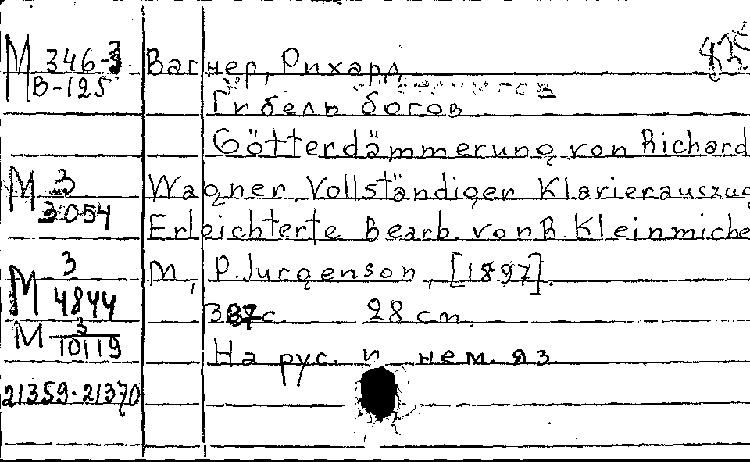 М 346-3 Вагнер, Рихард 835
В-125
Гибель богов
Götterdämmerung von Richard
М 3 Wagner. Vollständiger Klavierauszug
3054 Erleichterte Bearb. von R. Kleinmiche
М 3 М., P. Jurgenson, [1897].
4844 387 с. 28 cm.
М 3
10119 На рус. и нем. яз
21359-21370